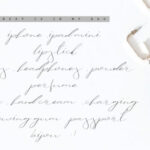 WHAT IS IN MY BAG
iphone ipadmini
lipstick
headphones powder
perfume
handcream charging
chewinggum passport
bijou :)